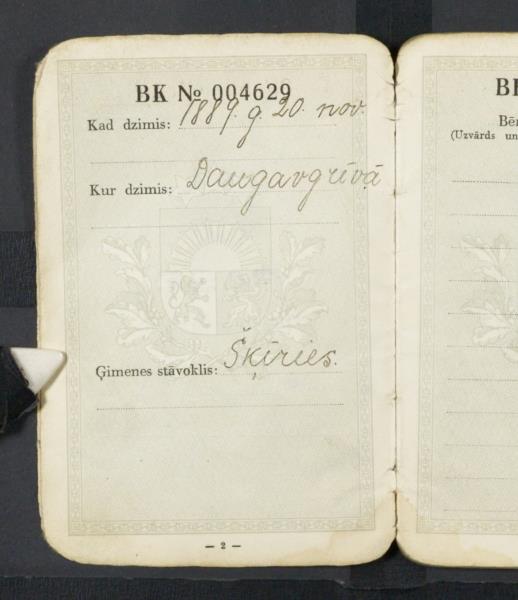 BK № 004629
Kad dzimis: 1889. g. 20. nov.
Kur dzimis: Daugavgrīvā
Ģimenes stāvoklis: Šķīries.
— 2 —
Bēr
(Uzvārds un